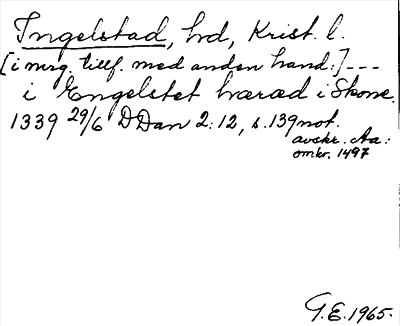 Ingelstad, hd, Krist. l.
[i mrg. tillf. med anden hand:]---
i Engelstet hæræd i Skone.
1339 29/6 DDan 2:12, s. 139 not.
avskr. Aa:
omkr. 1497
G.E. 1965.